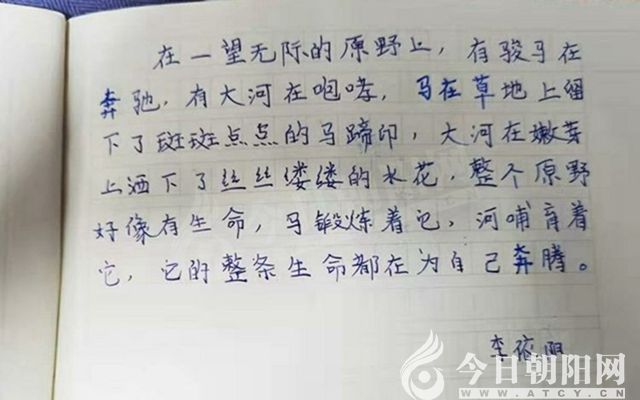 在一望无际的原野上，有骏马在
奔驰，有大河在咆哮，马在草地上留
下了斑斑点点的马蹄印，大河在嫩芽
上洒下了丝丝缕缕的水花，整个原野
好像有生命，马锻炼着它，河哺育着
它，它的整条生命都在为自己奔腾。
李
今日朝阳网
WWW.ATCY.CN